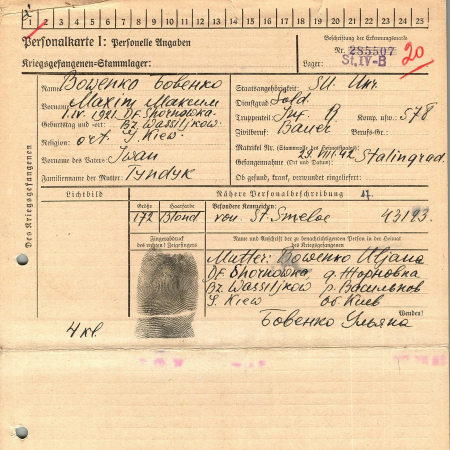 1 2 3 4 5 6 7 8 9 10 11 12 13 14 15 16 17 18 19 20 21 22 23 24 25
Personalkarte I: Personelle Angaben
Kriegsgefangenen-Stammlager:
Beschriftung der Erkennungsmarke
Nr. 285507
Lager: St. IV-B
20
Des Kriegsgefangenen
Name: Bowenko Бовенко
Vorname: Maxim Максим
Geburtstag und -ort: 1.IV.1921 Df. Shornowka.
Bz. Wassiljkow
Religion: ort. G. Kiew
Vorname des Vaters: Iwan
Familienname der Mutter: Tyndyk
Staatsangehörigkeit: SU. Ukr.
Dienstgrad: Sold.
Truppenteil: Inf. R Komp. usw.: 578
Zivilberuf: Bauer Berufs-Gr.:
Matrikel Nr. (Stammrolle des Heimatstaates):
Gefangennahme (Ort und Datum): 23.VIII.42 Stalingrad.
Ob gesund, krank, verwundet eingeliefert:
Lichtbild
Nähere Personalbeschreibung
Größe
172
Haarfarbe
Blond
Besondere Kennzeichen:
von St. Smeloe 431/93.
Fingerabdruck
des rechten! Zeigefingers
Name und Anschrift der zu benachrichtigenden Person in der Heimat
des Kriegsgefangenen
Mutter: Bowenko Uljana
Df. Shornowka д. Жорновка
Bz. Wassiljkow р. Васильков
G. Kiew об. Киев
Бовенко Ульяна
Wenden!